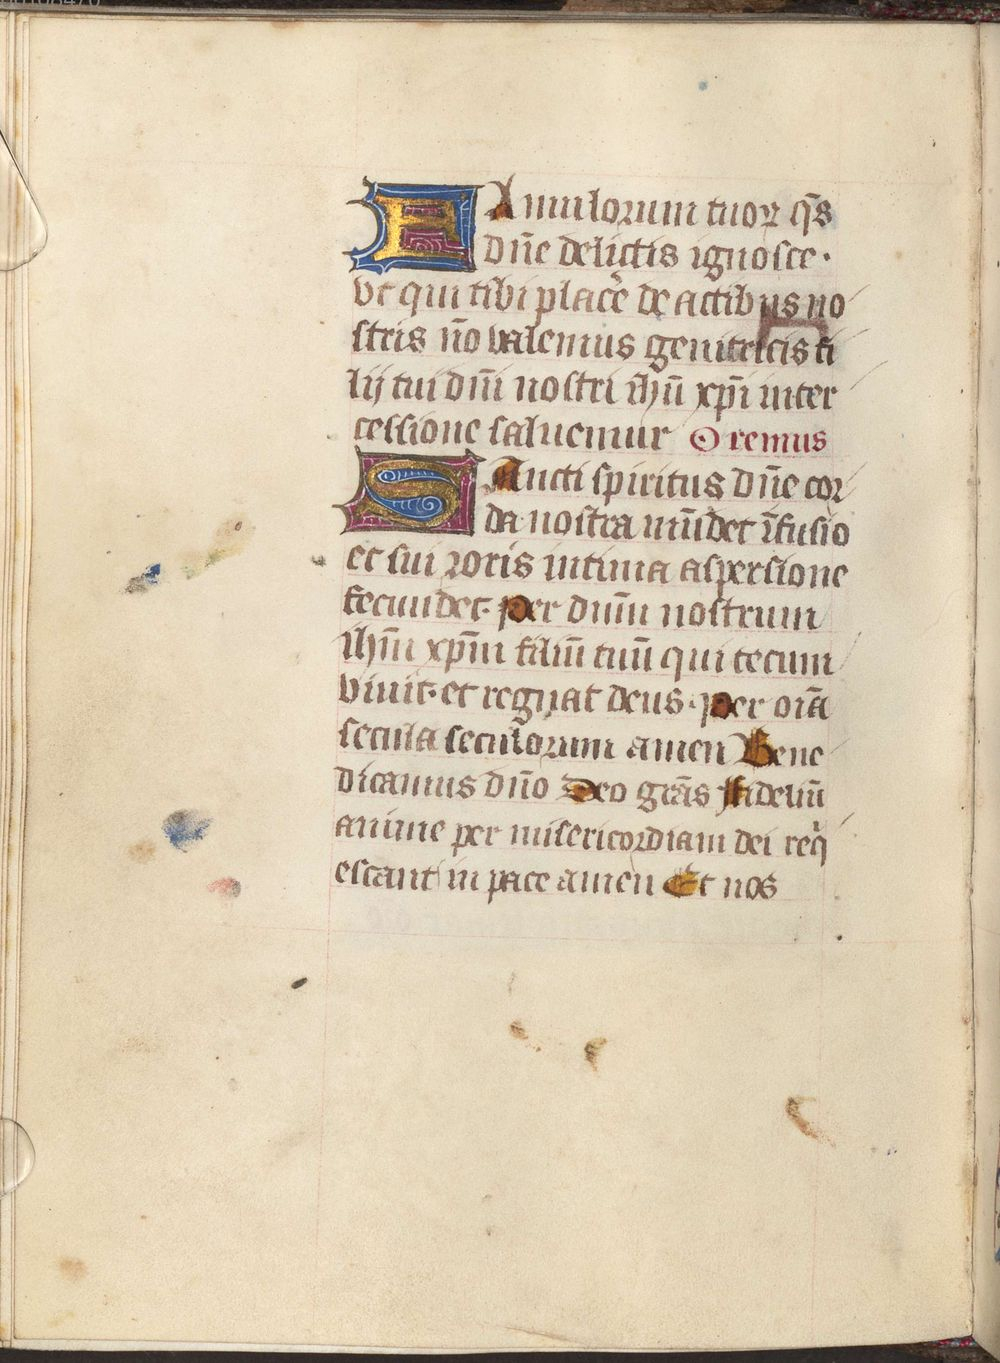 FAmulorum tuoꝝ q̄s
dn̄e delictis ignosce.
vt qui tibi plac̄e de actibus no
stris no̅ valemus genitricis fi
lij tui dn̄i nostri ih̄u xp̄i inter
cessione saluemur Oremus
SAncti spiritus dn̄e cor
da nostra mūdet īfusio
et sui roris intima aspersione
fecundet. per dn̄m nostrum
ih̄m xp̄m filiū tuū qui tecum
viuit. et regnat deus. per oīa
secula seculorum amen Bene
dicamus dn̄o Deo grās Fideliū
anime per misericordiam dei req̄
escant in pace amen Et nos